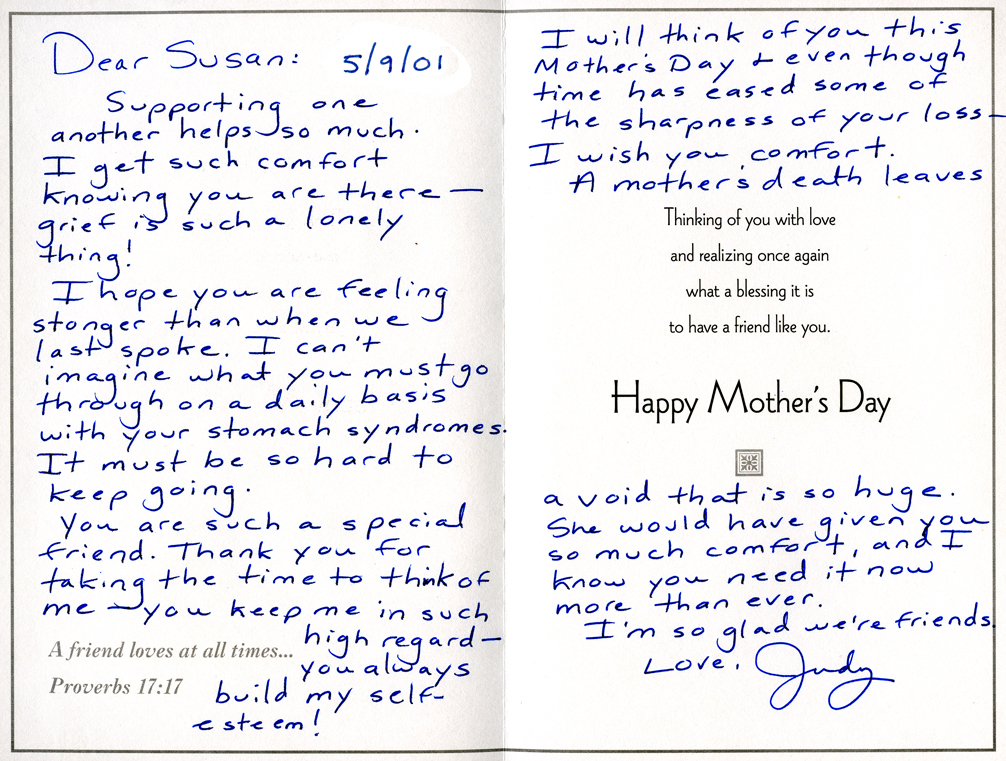 Dear Susan: 5/9/01
Supporting one
another helps so much.
I get such comfort
knowing you are there —
grief is such a lonely
thing!
I hope you are feeling
stonger than when we
last spoke. I can't
imagine what you must go
through on a daily basis
with your stomach syndromes.
It must be so hard to
keep going.
You are such a special
friend. Thank you for
taking the time to think of
me — you keep me in such
high regard —
you always
build my self-
esteem!
A friend loves at all times...
Proverbs 17:17
I will think of you this
Mother's Day & even though
time has eased some of
the sharpness of your loss —
I wish you comfort.
A mother's death leaves
Thinking of you with love
and realizing once again
what a blessing it is
to have a friend like you.
Happy Mother's Day
a void that is so huge.
She would have given you
so much comfort, and I
know you need it now
more than ever.
I'm so glad we're friends.
Love, Judy